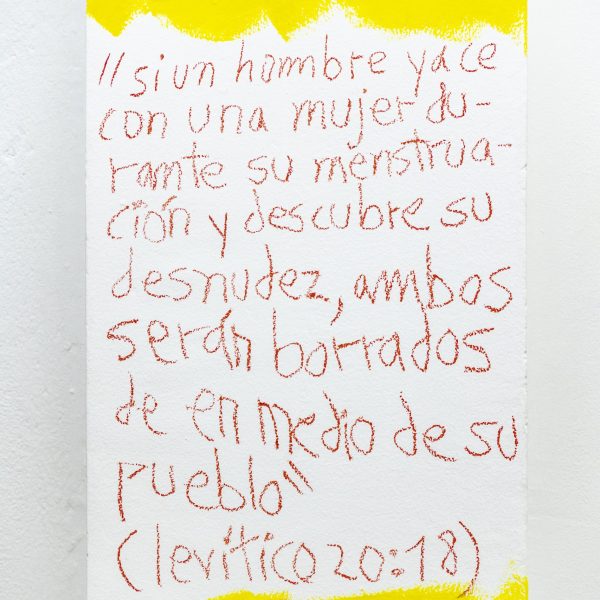 "si un hombre yace
con una mujer du-
rante su menstrua-
ción y descubre su
desnudez, ambos
serán borrados
de en medio de su
pueblo"
(levítico 20:18)